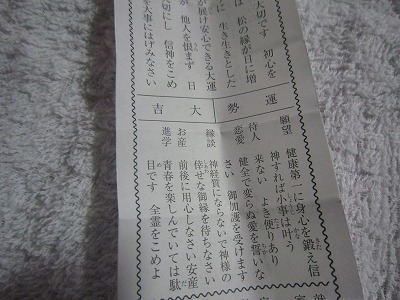 大切です 初心を
は 松の緑が日に増
に 生き生きとした
が展け安心できる大運
が 他人を恨まず 日
切にし 信神をこめ
を大事にはげみなさい
運勢 大吉
願望 健康第一に身心を鍛え信
神すれば小事は叶う
待人 来ない よき便りあり
恋愛 健全で変らぬ愛を誓いな
さい 御加護を受けます
縁談 神経質にならないで神様の
幸せな御縁を待ちなさい
お産 前後に用心しなさい安産
進学 青春を楽しんでいては駄
目です 全霊をこめよ